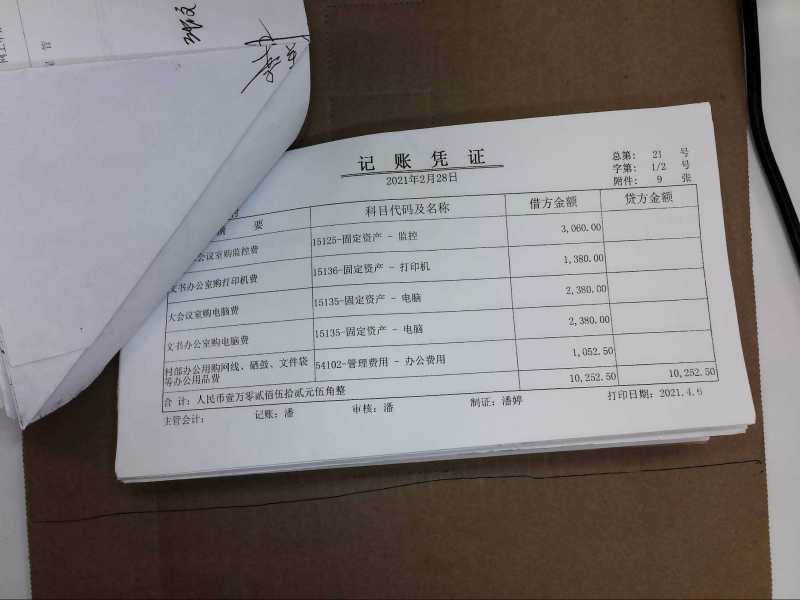 记账凭证
2021年2月28日
总第： 21 号
字第： 1/2 号
附件： 9 张
摘 要 科目代码及名称 借方金额 贷方金额
会议室购监控费 15125-固定资产 - 监控 3,060.00
文书办公室购打印机费 15136-固定资产 - 打印机 1,380.00
大会议室购电脑费 15135-固定资产 - 电脑 2,380.00
文书办公室购电脑费 15135-固定资产 - 电脑 2,380.00
村部办公用购网线、硒鼓、文件袋
等办公用品费 54102-管理费用 - 办公费用 1,052.50
合 计：人民币壹万零贰佰伍拾贰元伍角整 10,252.50 10,252.50
主管会计： 记账：潘 审核：潘 制证：潘婷 打印日期：2021.4.6